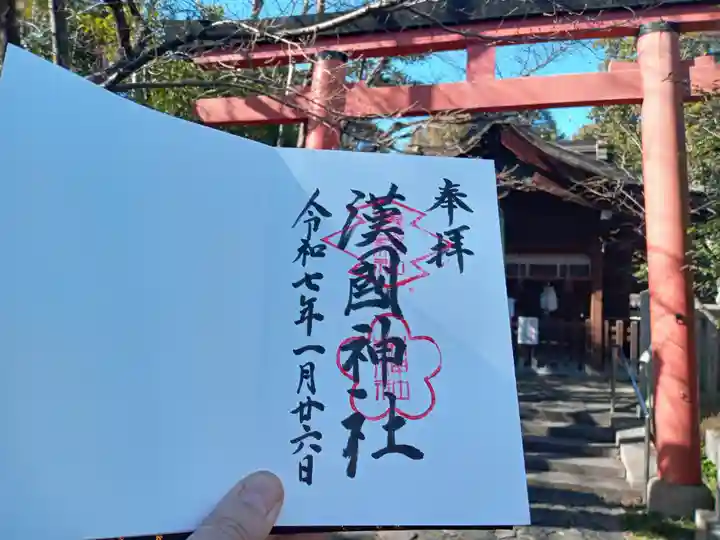 奉拝
漢國神社
令和七年一月廿六日